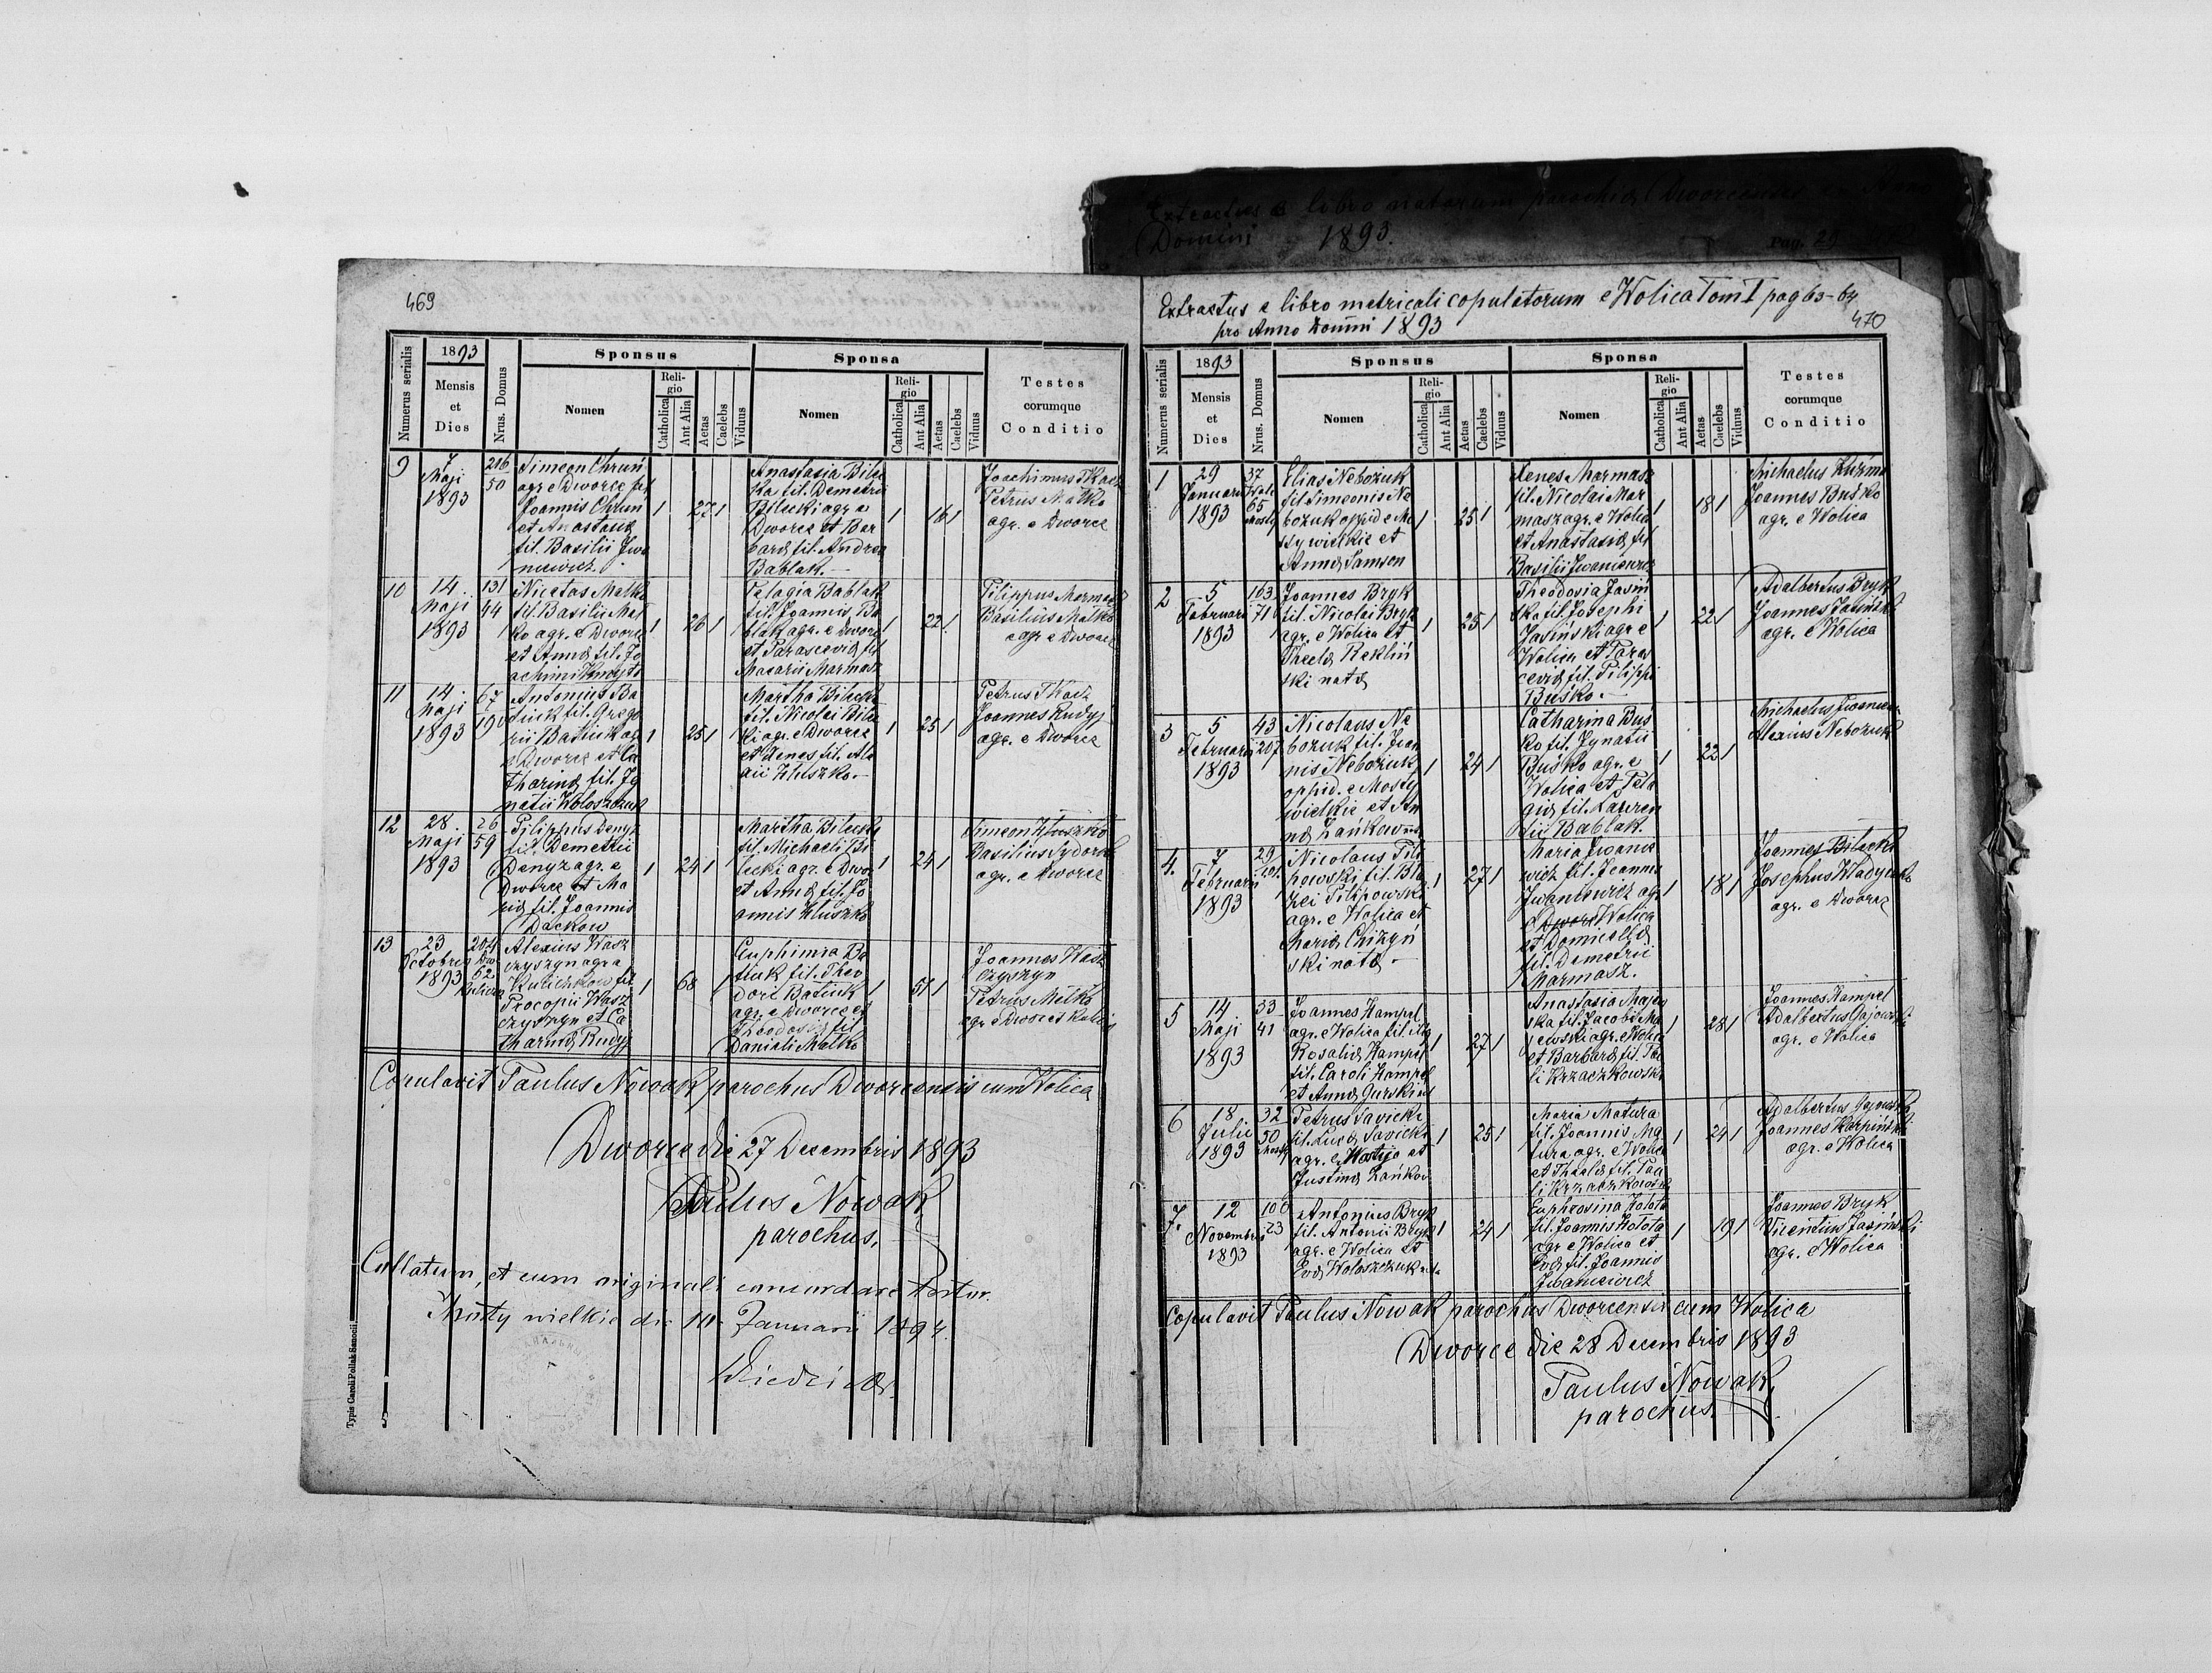 469
1893
Numerus serialis
Mensis
et
Dies
Nrus. Domus
Sponsus
Nomen
Reli-
gio
Catholica
Aut Alia
Aetas
Caelebs
Viduus
Sponsa
Nomen
Reli-
gio
Catholica
Aut Alia
Aetas
Caelebs
Viduus
Testes
eorumque
Conditio
9
7
Maji
1893
206
50
Simeon Chruń
agr. e Dworce fil
Joannis Chruń
et Anastasiæ
fil. Basilii Iwa
niewicz.
1 27 1
Anastasia Bilec
ka fil. Demetrii
Bilecki agr. e
Dworce et Bar
baræ fil. Andreæ
Bablak.
1 16 1
Joachimus Tkacz
Petrus Małko
agr. e Dworce
10
14
Maji
1893
131
44
Nicetas Małko
fil. Basilii Mał
ko agr. e Dworce
et Annæ fil. Jo
achimi
1 26 1
Pelagia Bablak
fil. Joannis Ba
blak agr. e Dworce
et Parasceviæ fil
Macarii Marmasz
1 22 1
Filippus Marmasz
Basilius Małko
agr. e Dworce
11
14
Maji
1893
67
190
Antonius Ba
tiuk fil. Grego
rii Batiuk agr
e Dworce et Ca
tharinæ fil. Ig
natii Wołoszczuk
1 25 1
Martha Bilecka
fil. Nicolai Bilec
ki agr. e Dworce
et Xenes fil. Ale
xii Hluszko.
1 25 1
Petrus Tkacz
Joannes Rudyj
agr. e Dworce
12
28
Maji
1893
26
59
Filippus Denyz
fil. Demetrii
Denyz agr. e
Dworce et Ma
riæ fil. Joannis
Dackow
1 24 1
Martha Bilecka
fil. Michaeli Bi
lecki agr. e Dwo
et Annæ fil. Jo
annis Hluszko
1 24 1
Simeon Hluszko
Basilius Sydorak
agr. e Dworce
13
23
Octobris
1893
204
Dwo
62
Alexius Wasz
czyszyn agr. a
Kulichkow fil.
Procopii Wasz
czyszyn et Ca
tharinæ Rudyj
1 68 1
Euphimia Ba
tiuk fil. Theo
dori Batiuk
agr. e Dworce et
Theodosiæ fil.
Danieli Małko
1 51 1
Joannes Wasz
czyszyn
Petrus Małko
Copulavit Paulus Nowak parochus Dworcensis cum Wolica
Dworce die 27 Decembris 1893
Paulus Nowak
parochus.
Collatum, et cum originali concordare testor.
Mosty wielkie die 10 Januarii 1894.
Typis Caroli Pollak Sanoci.
Extractus e libro natorum parochiæ Dworcensis
Domini 1893.
Pag. 29
Extractus e libro metricali copulatorum e Wolica Tom I pag 63-64
pro Anno Domini 1893
470
1893
Numerus serialis
Mensis
et
Dies
Nrus. Domus
Sponsus
Nomen
Reli-
gio
Catholica
Aut Alia
Aetas
Caelebs
Viduus
Sponsa
Nomen
Reli-
gio
Catholica
Aut Alia
Aetas
Caelebs
Viduus
Testes
eorumque
Conditio
1
29
Januarii
1893
37
Wola
65
Mosty
Elias Nebożuk
fil Simeonis Ne
bożuk oppid e Mo
sty wielkie et
Annæ Samson
1 25 1
Xenes Marmasz
fil. Nicolai Mar
masz agr. e Wolica
et Anastasiæ fil
Basilii Iwaniewicz
1 18 1
Michaelus Kuźma
Joannes Buśko
agr. e Wolica
2
5
Februarii
1893
163
71
Joannes Bryk
fil. Nicolai Bryk
agr. e Wolica et
Theclæ Rekliń
ski natæ
1 25 1
Theodosia Jasiń
ska fil Josephi
Jasiński agr e
Wolica et Paras
ceviæ fil. Filippi
Buśko.
1 22 1
Adalbertus Bryk
Joannes Jasiński
agr. e Wolica
3
5
Februarii
1893
43
207
Nicolaus Ne
bożuk fil. Joan
nis Nebożuk
oppid. e Mosty
wielkie et An
næ Łańkow
1 24 1
Catharina Buś
ko fil. Ignatii
Buśko agr. e
Wolica et Pela
giæ fil. Lauren
tii Bablak.
1 22 1
Michaelus Iwaniew
Alexius Nebożuk
4.
7
Februarii
1893
29
201
Nicolaus Fili
powski fil. Bła
żei Filipowski
agr. e Wolica et
Mariæ Chiżyń
ski natæ
1 27 1
Maria Iwanie
wicz fil. Joannis
Iwaniewicz agr
e Wolica
et Domicellæ
fil. Demetrii
Marmasz.
1 18 1
Joannes Bilecki
Josephus Hladyszko
agr. e Dworce
5
14
Maji
1893
33
41
Joannes Hampel
agr. e Wolica fil. illeg
Rosaliæ Hampel
fil. Caroli Hampel
et Annæ Gurski
1 27 1
Anastasia Majew
ska fil. Jacobi Ma
jewski agr. e Wolica
et Barbaræ fil. Pau
li Krzaczkowski
1 28 1
Joannes Hampel
Adalbertus Gajowski
agr. e Wolica
6
18
Julii
1893
32
50
Mosty
Petrus Savicki
fil. Lucæ Savicki
agr. e et
Justinæ Łańkow
1 25 1
Maria Matura
fil. Joannis Ma
tura agr. e Wolica
et Theclæ fil. Pau
li Krzaczkowski
1 24 1
Adalbertus Gajowski
Joannes Karpiński
agr. e Wolica
7.
12
Novembris
1893
106
23
Antonius Bryk
fil. Antonii Bryk
agr. e Wolica et
Evæ Wołoszczuk
1 24 1
Euphrosina Hołota
fil. Joannis Hołota
agr e Wolica et
Evæ fil. Joannis
Iwaniewicz
1 19 1
Joannes Bryk
Vicentius Jasiński
agr. e Wolica
Copulavit Paulus Nowak parochus Dworcensis cum Wolica
Dworce die 28 Decembris 1893
Paulus Nowak
parochus.